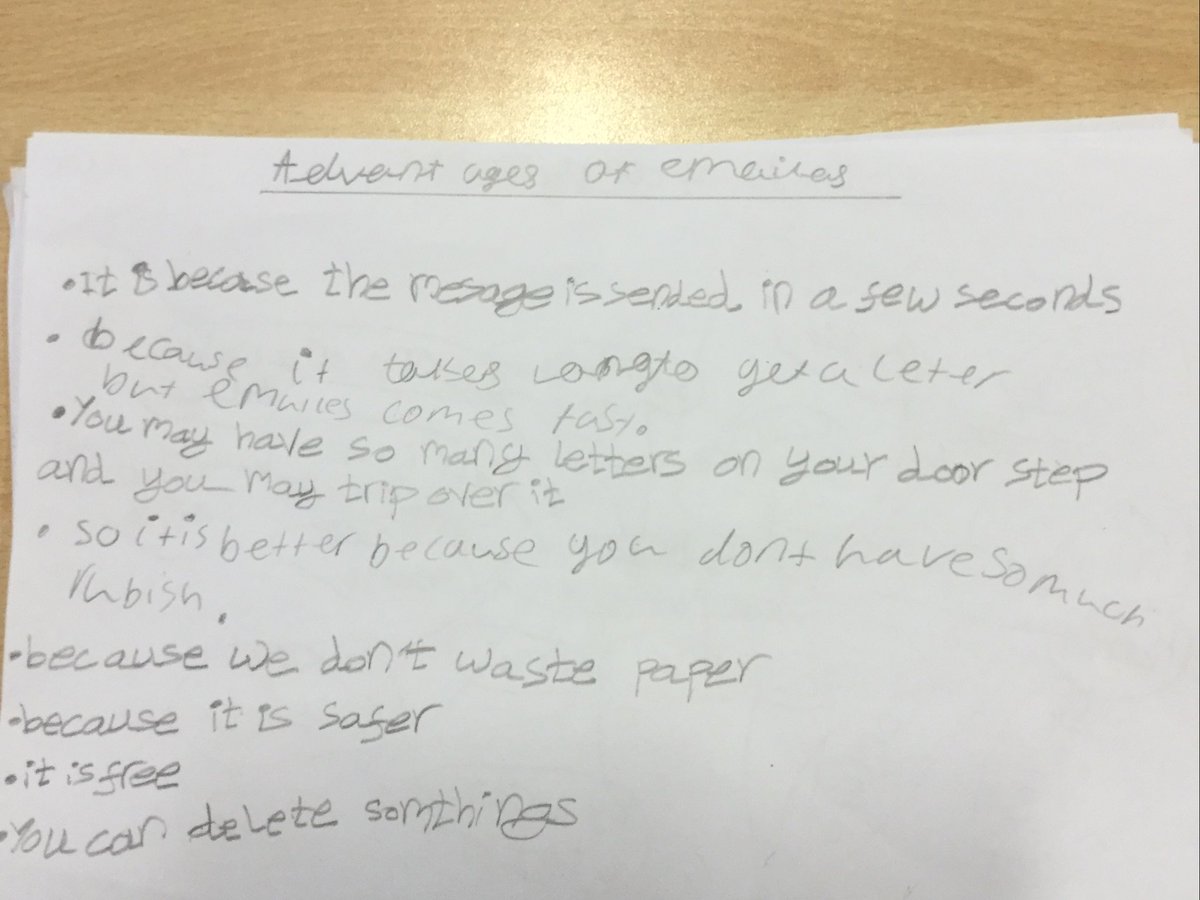 Advantages of emailes
• It is because the mesage is sended in a few seconds
• because it takes long to get a leter
but emailes comes fast.
• You may have so many letters on your door step
and you may trip over it
• so it is better because you dont have so much
rubish.
• because we don't waste paper
• because it is safer
• it is free
• You can delete somthings